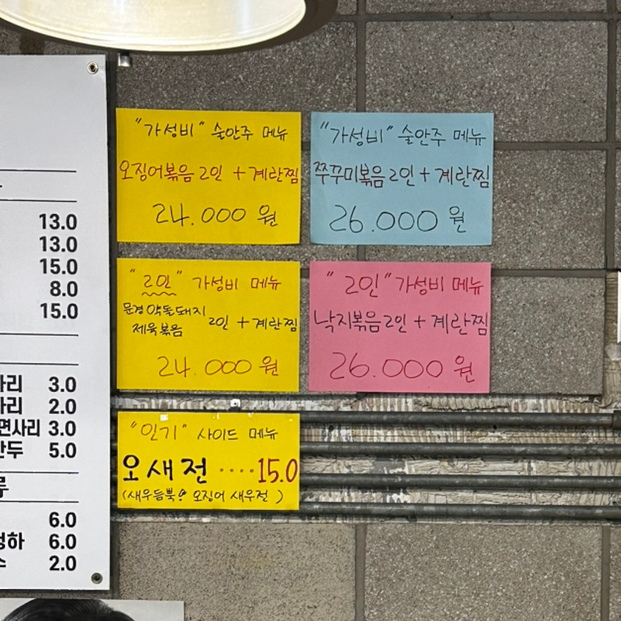 13.0
13.0
15.0
8.0
15.0
사리 3.0
사리 2.0
면사리 3.0
만두 5.0
류
6.0
청하 6.0
2.0
"가성비" 술안주 메뉴
오징어볶음 2인 + 계란찜
24.000 원
"가성비" 술안주 메뉴
쭈꾸미볶음 2인 + 계란찜
26.000 원
"2인" 가성비 메뉴
문경약돌돼지
제육볶음 2인 + 계란찜
24.000 원
"2인" 가성비 메뉴
낙지볶음 2인 + 계란찜
26.000 원
"인기" 사이드 메뉴
오새전 ····15.0
(새우듬뿍! 오징어 새우전 )